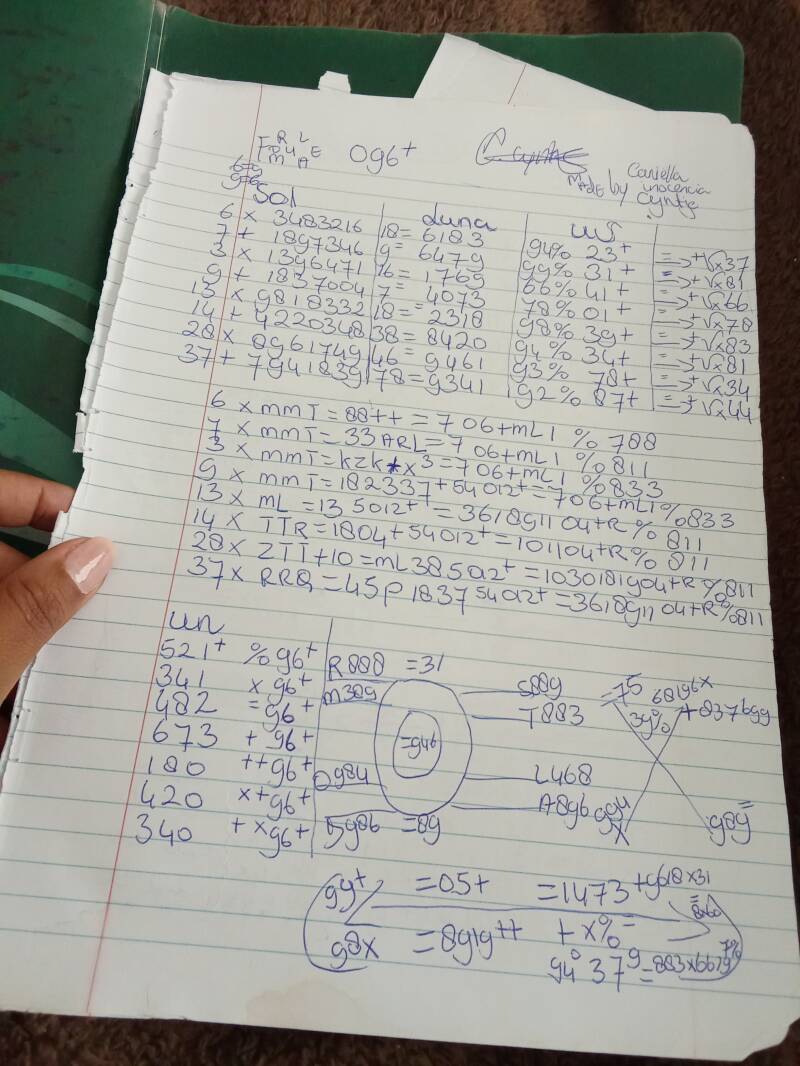 Og6+
MADE by Caniella inocencia Cyntje
6=9
9=6
Sol Luna us
6 x 3483216 18= 6183 94% 23+ =→+√x37
7 + 1897346 9= 6479 99% 31+ =→+√x81
3 x 1396471 16= 1769 66% 41+ =→+√x66
9 + 1837004 7= 4073 78% 01+ =→+√x78
13 x 9818332 18= 2318 98% 39+ =→+√x83
14 + 4220348 38= 8420 94% 34+ =→+√x81
28 x 8961749 46= 9461 93% 78+ =→+√x34
37 + 7941839 78= 9341 192% 87+ =→+√x44
6 x mmT = 88++ = 706+mL1 % 788
7 x mmT = 33ARL = 706+mL1 % 811
3 x mmT = kzk+x3 = 706+mL1 % 833
9 x mmT = 182337+54012+ = 706+mL1 % 833
13 x mL = 135012+ = 361891104+R % 811
14 x TTR = 1804+54012+ = 101104+R % 811
28 x ZTT+10 = mL385012+ = 1030181904+R % 811
37 x RRQ = 45p183754012+ = 361891104+R % 811
un
521+ % g6+ R888 =31
341 x g6+ m389 S889 =75 68196x
482 = g6+ T883 39% +8376gg
673 + g6+ =946
180 ++g6+ 0984 L468
420 x+g6+ A8g6 994x g8g=
340 +xg6+ 5986 =89
gy+ =05+ =1473+9618x31
=8x60
g8x =8919++ +x%=
94°37g=883x6679 7%